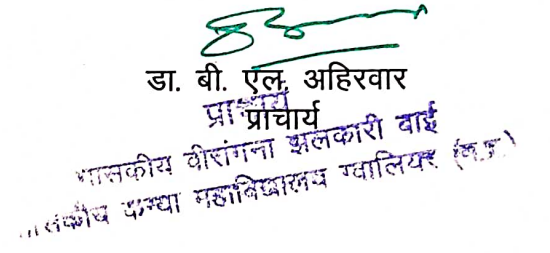 डा. बी. एल. अहिरवार
प्राचार्य
प्राचार्य
शासकीय वीरांगना झलकारी बाई
शासकीय कन्या महाविद्यालय ग्वालियर (म.प्र.)